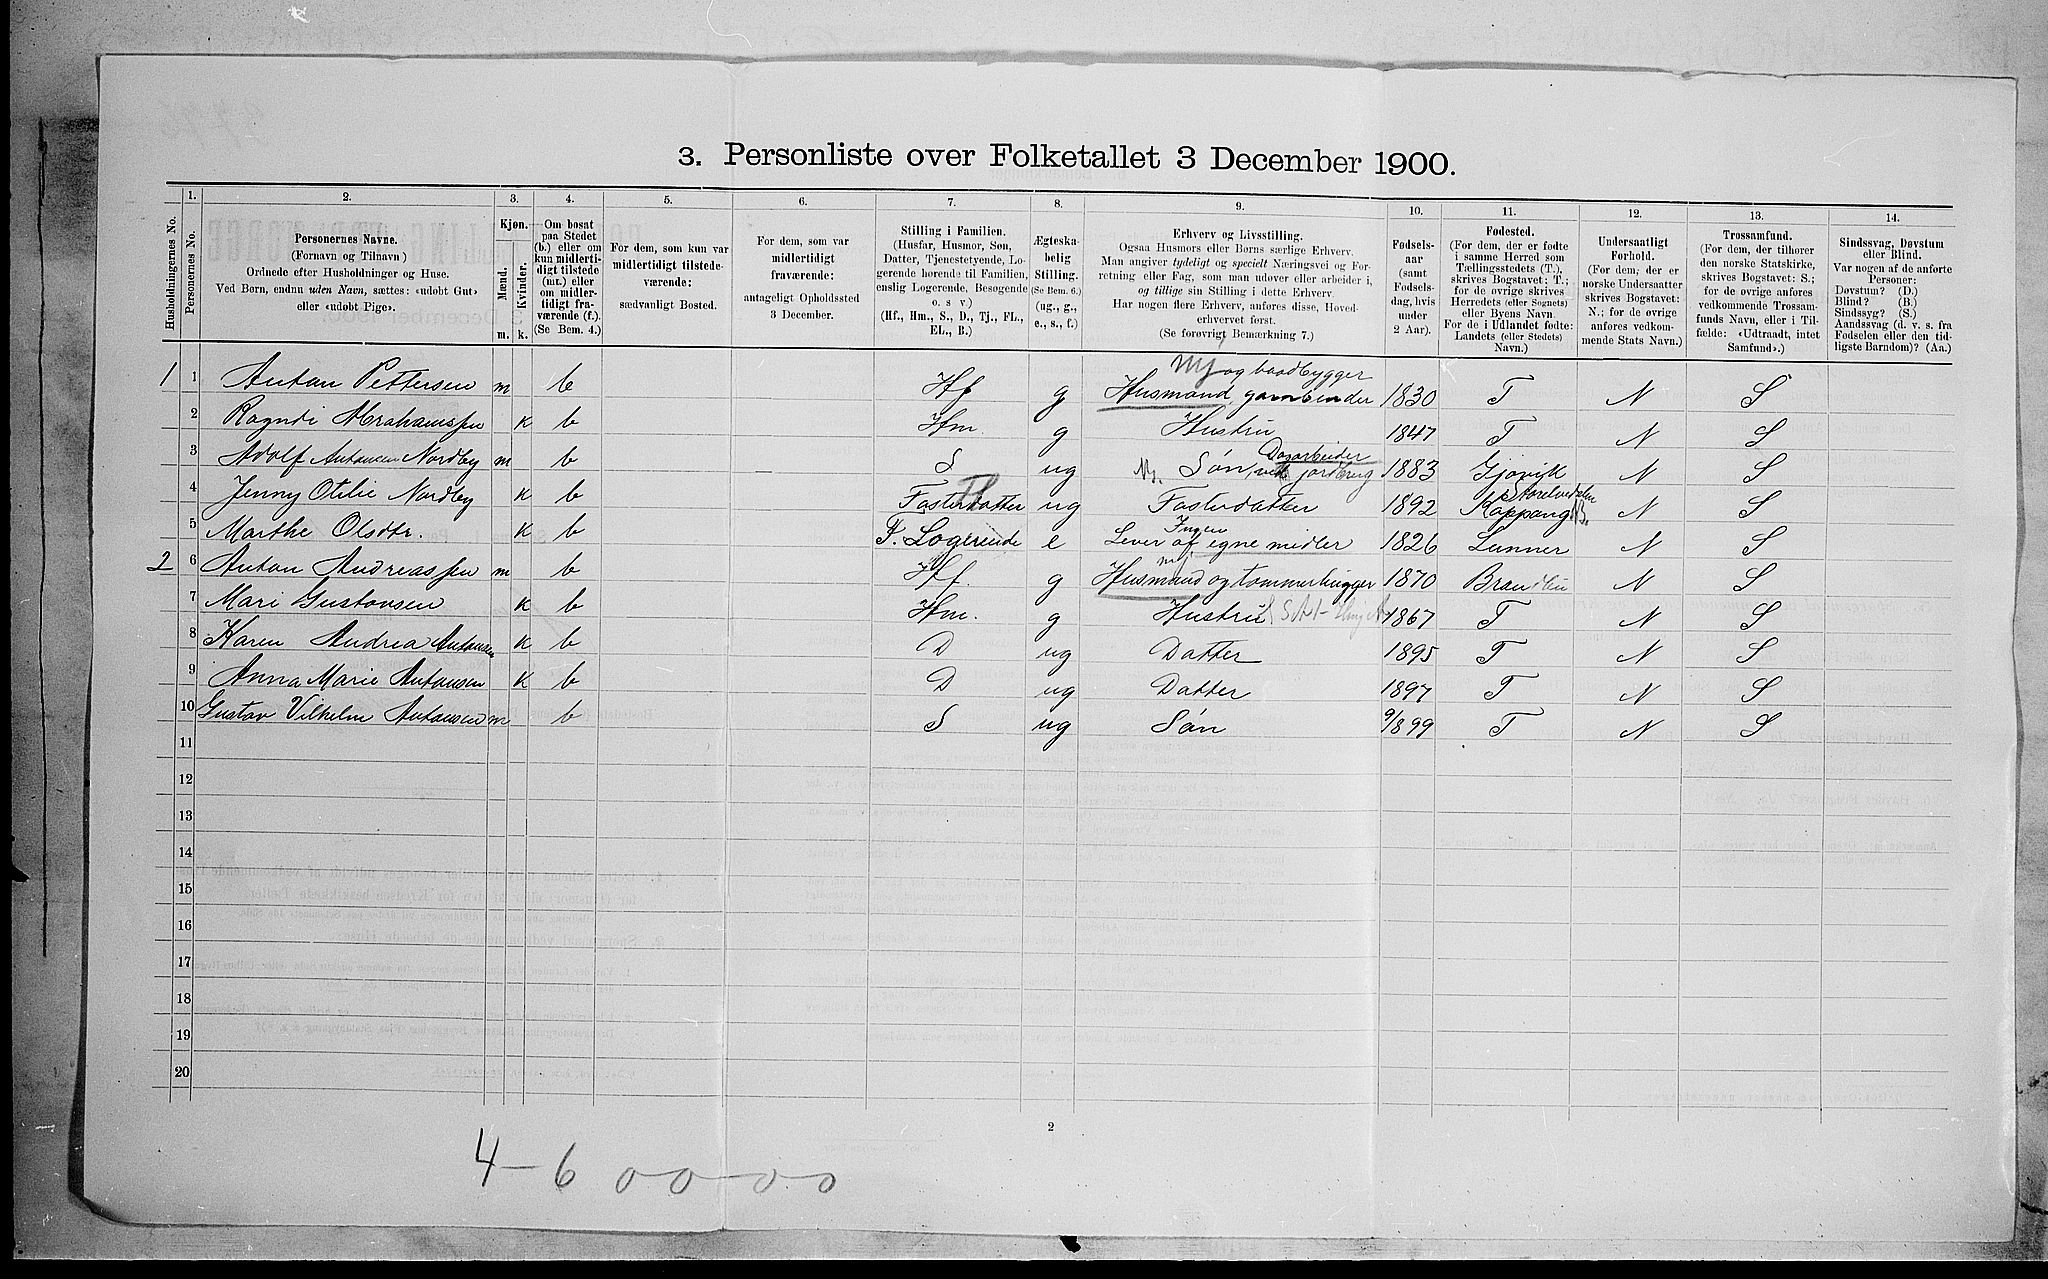 3. Personliste over Folketallet 3 December 1900.
1. 2. 3. 4. 5. 6. 7. 8. 9. 10. 11. 12. 13. 14.
Husholdningernes No.
Personernes No.
Personernes Navne.
(Fornavn og Tilnavn)
Ordnede efter Husholdninger og Huse.
Ved Børn, endnu uden Navn, sættes: «udøbt Gut»
eller «udøbt Pige».
Kjøn.
Mænd.
Kvinder.
m. k.
Om bosat
paa Stedet
(b.) eller om
kun midlerti-
digt tilstede
(mt.) eller
om midler-
tidigt fra-
værende (f.).
(Se Bem. 4.)
For dem, som kun var
midlertidigt tilstede-
værende:
sædvanligt Bosted.
For dem, som var
midlertidigt
fraværende:
antageligt Opholdssted
3 December.
Stilling i Familien.
(Husfar, Husmor, Søn,
Datter, Tjenestetyende, Lo-
gerende hørende til Familien,
enslig Logerende, Besøgende
o. s v.)
(Hf., Hm., S., D., Tj., FL.,
EL., B.)
Ægteska-
belig
Stilling.
(Se Bem. 6.)
(ug., g.,
e., s., f.)
Erhverv og Livsstilling.
Ogsaa Husmors eller Børns særlige Erhverv.
Man angiver tydeligt og specielt Næringsvei og For-
retning eller Fag, som man udøver eller arbeider i,
og tillige sin Stilling i dette Erhverv.
Har nogen flere Erhverv, anføres disse, Hoved-
erhvervet først.
(Se forøvrigt Bemærkning 7.)
Fødsels-
aar
(samt
Fødsels-
dag, hvis
under
2 Aar).
Fødested.
(For dem, der er fødte
i samme Herred som
Tællingsstedets (T.),
skrives Bogstavet: T.;
for de øvrige skrives
Herredets (eller Sognets)
eller Byens Navn.
For de i Udlandet fødte:
Landets (eller Stedets)
Navn.)
Undersaatligt
Forhold.
(For dem, der er
norske Undersaatter
skrives Bogstavet:
N.; for de øvrige
anføres vedkom-
mende Stats Navn.)
Trossamfund.
(For dem, der tilhører
den norske Statskirke,
skrives Bogstavet: S.;
for de øvrige anføres
vedkommende Trossam-
funds Navn, eller i Til-
fælde: «Udtraadt, intet
Samfund».)
Sindssvag, Døvstum
eller Blind.
Var nogen af de anførte
Personer:
Døvstum? (D.)
Blind? (B.)
Sindssyg? (S.)
Aandssvag (d. v. s. fra
Fødselen eller den tid-
ligste Barndom)? (Aa.)
mj og baadbygger
1 1 Anton Pettersen m b Hf g Husmand, garnbinder 1830 T N S
2 Ragndi Abrahamssen k b Hm. g Hustru 1847 T N S
Dagarbeider
3 Adolf Antonsen Nordby m b S ug Søn, ved jordbrug 1883 Gjøvik N S
Storelvedalen
4 Jenny Otilie Nordby k b Fosterdatter ug Fosterdatter 1892 Koppang N S
Ingen
5 Marthe Olsdtr. k b F. Logerende e Lever af egne midler 1826 Lunner N S
mj
2 6 Anton Andreassen m b Hf. g Husmand og tømmerhugger 1870 Brandbu N S
7 Mari Gustavsen k b Hm. g Hustru 1867 T N S
8 Karen Andrea Antonsen k b D ug Datter 1895 T N S
9 Anna Marie Antonsen k b D ug Datter 1897 T N S
10 Gustav Vilhelm Antonsen m b S ug Søn 9/8 99 T N S
11
12
13
14
15
16
17
18
19
20
2
4 - 6 0 0 - 0 - 0